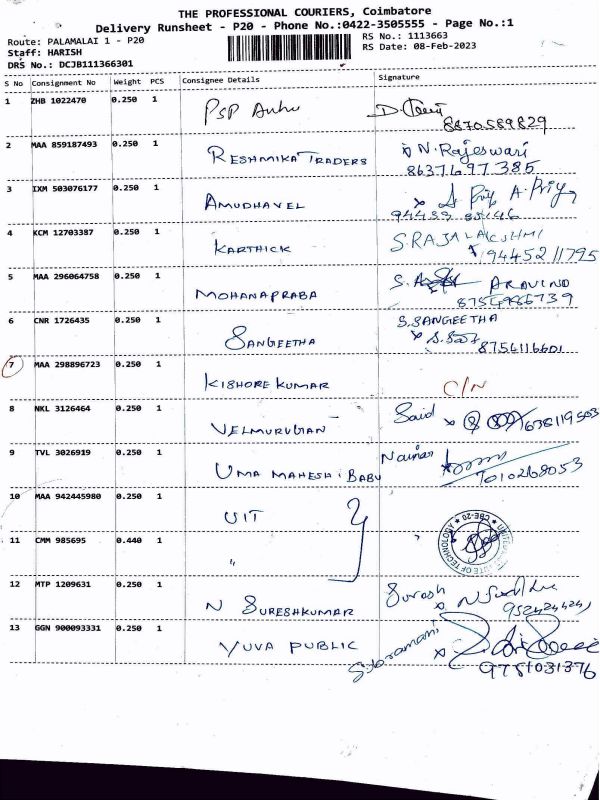 THE PROFESSIONAL COURIERS, Coimbatore
Delivery Runsheet - P20 - Phone No.:0422-3505555 - Page No.:1
Route: PALAMALAI 1 - P20
Staff: HARISH
DRS No.: DCJB111366301
RS No.: 1113663
RS Date: 08-Feb-2023
S No Consignment No Weight PCS Consignee Details Signature
1 ZHB 1022470 0.250 1 PSP
8870589829
2 MAA 859187493 0.250 1 RESHMIKA TRADERS N. Rajeswari
8637697385
3 IXM 503076177 0.250 1 AMUDHAVEL A. Priya
4 KCM 12703387 0.250 1 KARTHICK S. RAJALAKSHMI
9445211795
5 MAA 296064758 0.250 1 MOHANAPRABA S. ARAVIND
6 CNR 1726435 0.250 1 SANGEETHA S. SANGEETHA
8754116601
7 MAA 298896723 0.250 1 KISHORE KUMAR C/N
8 NKL 3126464 0.250 1 VELMURUGAN Said
9 TVL 3026919 0.250 1 UMA MAHESH. BABU Nainar
7010268053
10 MAA 942445980 0.250 1 UIT
11 CMM 985695 0.440 1 "
UNITED INSTITUTE OF TECHNOLOGY ★ CBE-20 ★
12 MTP 1209631 0.250 1 N SURESHKUMAR Suresh
13 GGN 900093331 0.250 1 YUVA PUBLIC
9751031376